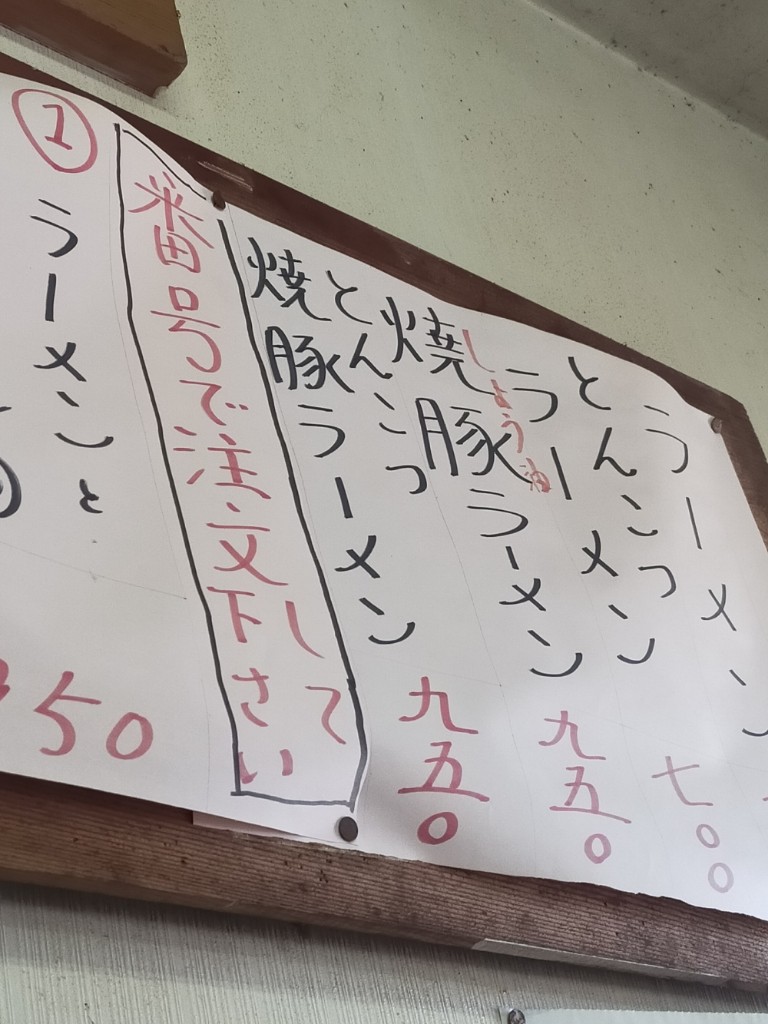 ラーメン
とんこつ
ラーメン
七〇〇
しょう油
焼豚ラーメン
九五〇
とんこつ
焼豚ラーメン
九五〇
番号で注文して
下さい
①
ラーメンと
50